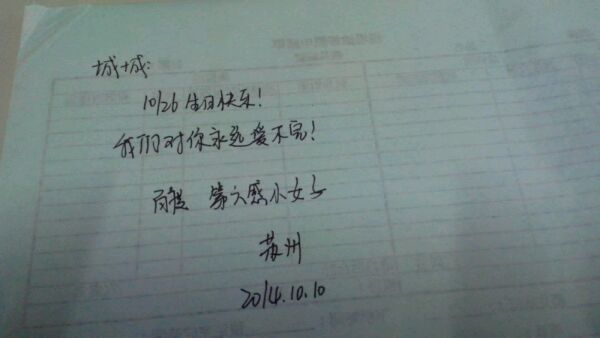 城城:
10/26 生日快乐!
我们对你永远爱不完!
第六感小女子
苏州
2014.10.10